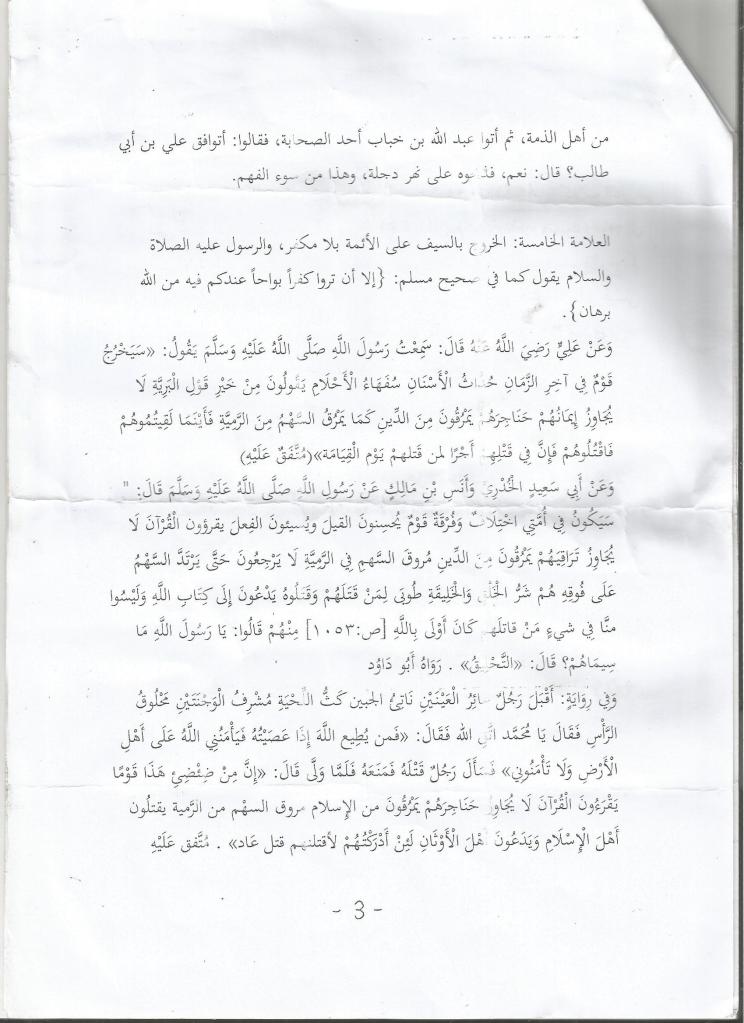 من أهل الذمة، ثم أتوا عبد الله بن خباب أحد الصحابة، فقالوا: أتوافق علي بن أبي
طالب؟ قال: نعم، فذبحوه على نهر دجلة، وهذا من سوء الفهم.
العلامة الخامسة: الخروج بالسيف على الأئمة بلا مكفر، والرسول عليه الصلاة
والسلام يقول كما في صحيح مسلم: {إلا أن تروا كفراً بواحاً عندكم فيه من الله
برهان}.
وَعَنْ عَلِيٍّ رَضِيَ اللَّهُ عَنْهُ قَالَ: سَمِعْتُ رَسُولَ اللَّهِ صَلَّى اللَّهُ عَلَيْهِ وَسَلَّمَ يَقُولُ: «سَيَخْرُجُ
قَوْمٌ فِي آخِرِ الزَّمَانِ حُدَّاثُ الْأَسْنَانِ سُفَهَاءُ الْأَحْلَامِ يَقُولُونَ مِنْ خَيْرِ قَوْلِ الْبَرِيَّةِ لَا
يُجَاوِزُ إِيمَانُهُمْ حَنَاجِرَهُمْ يَمْرُقُونَ مِنَ الدِّينِ كَمَا يَمْرُقُ السَّهْمُ مِنَ الرَّمِيَّةِ فَأَيْنَمَا لَقِيتُمُوهُمْ
فَاقْتُلُوهُمْ فَإِنَّ فِي قَتْلِهِمْ أَجْرًا لمن قَتلهمْ يَوْم الْقِيَامَة»(مُتَّفَقٌ عَلَيْهِ)
وَعَنْ أَبِي سَعِيدٍ الْخُدْرِيِّ وَأَنَسِ بْنِ مَالِكٍ عَنْ رَسُولِ اللَّهِ صَلَّى اللَّهُ عَلَيْهِ وَسَلَّمَ قَالَ: "
سَيَكُونُ فِي أُمَّتِي اخْتِلَافٌ وَفُرْقَةٌ قَوْمٌ يُحسِنونَ القيلَ ويُسيئونَ الفِعلَ يقرؤون الْقُرْآنَ لَا
يُجَاوِزُ تَرَاقِيَهُمْ يَمْرُقُونَ مِنَ الدِّينِ مُروقَ السَّهمِ فِي الرَّمِيَّةِ لَا يَرْجِعُونَ حَتَّى يَرْتَدَّ السَّهْمُ
عَلَى فُوقِهِ هُمْ شَرُّ الْخَلْقِ وَالْخَلِيقَةِ طُوبَى لِمَنْ قَتَلَهُمْ وَقَتَلُوهُ يَدْعُونَ إِلَى كِتَابِ اللَّهِ وَلَيْسُوا
منَّا فِي شيءٍ مَنْ قاتلَهم كَانَ أَوْلَى بِاللَّهِ [ص:١٠٥٣] مِنْهُمْ قَالُوا: يَا رَسُولَ اللَّهِ مَا
سِيمَاهُمْ؟ قَالَ: «التَّحْلِيقُ» . رَوَاهُ أَبُو دَاوُد
وَفِي رِوَايَةٍ: أَقْبَلَ رَجُلٌ غَائِرُ الْعَيْنَيْنِ نَاتِئُ الجبين كَثُّ اللِّحْيَةِ مُشْرِفُ الْوَجْنَتَيْنِ مَحْلُوقُ
الرَّأْسِ فَقَالَ يَا مُحَمَّد اتَّقِ الله فَقَالَ: «فَمن يُطِيع اللَّهَ إِذَا عَصَيْتُهُ فَيَأْمَنُنِي اللَّهُ عَلَى أَهْلِ
الْأَرْضِ وَلَا تَأْمَنُونِي» فَسَأَلَ رَجُلٌ قَتْلَهُ فَمَنَعَهُ فَلَمَّا وَلَّى قَالَ: «إِنَّ مِنْ ضِئْضِئِ هَذَا قَوْمًا
يَقْرَءُونَ الْقُرْآنَ لَا يُجَاوِزُ حَنَاجِرَهُمْ يَمْرُقُونَ من الإِسلام مروق السهْم من الرَّمية يقتلُون
أَهْلَ الْإِسْلَامِ وَيَدَعُونَ أَهْلَ الْأَوْثَانِ لَئِنْ أَدْرَكْتُهُمْ لأقتلنهم قتل عَاد» . مُتَّفق عَلَيْهِ
- 3 -